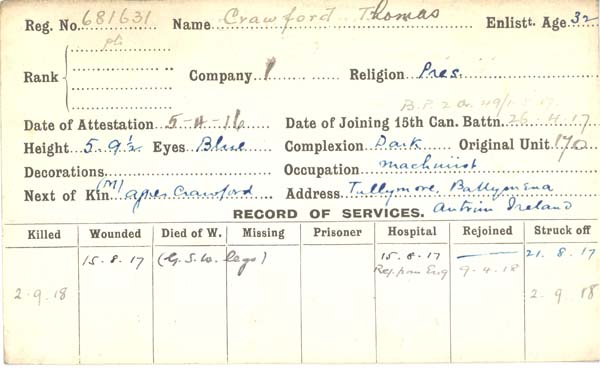 Reg. No. 681631 Name Crawford Thomas Enlistt. Age 32
Rank pte Company 1 Religion Pres.
Date of Attestation 5-4-16 Date of Joining 15th Can. Battn. 26.4.17
Height 5.9½ Eyes Blue Complexion Dark Original Unit 170
Decorations Occupation machinist
Next of Kin (M) Agnes Crawford Address Tullymore, Ballymena
Antrim Ireland
RECORD OF SERVICES.
Killed Wounded Died of W. Missing Prisoner Hospital Rejoined Struck off
15.8.17 (G.S.W. legs) 15.8.17 21.8.17
Rej. from Eng 9.4.18
2.9.18 2.9.18